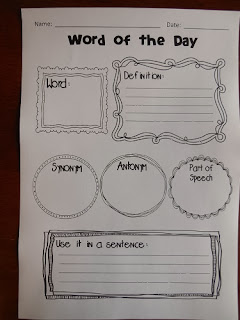 Name: Date:
Word of the Day
Word:
Definition:
Synonym
Antonym
Part of
Speech
Use it in a sentence: